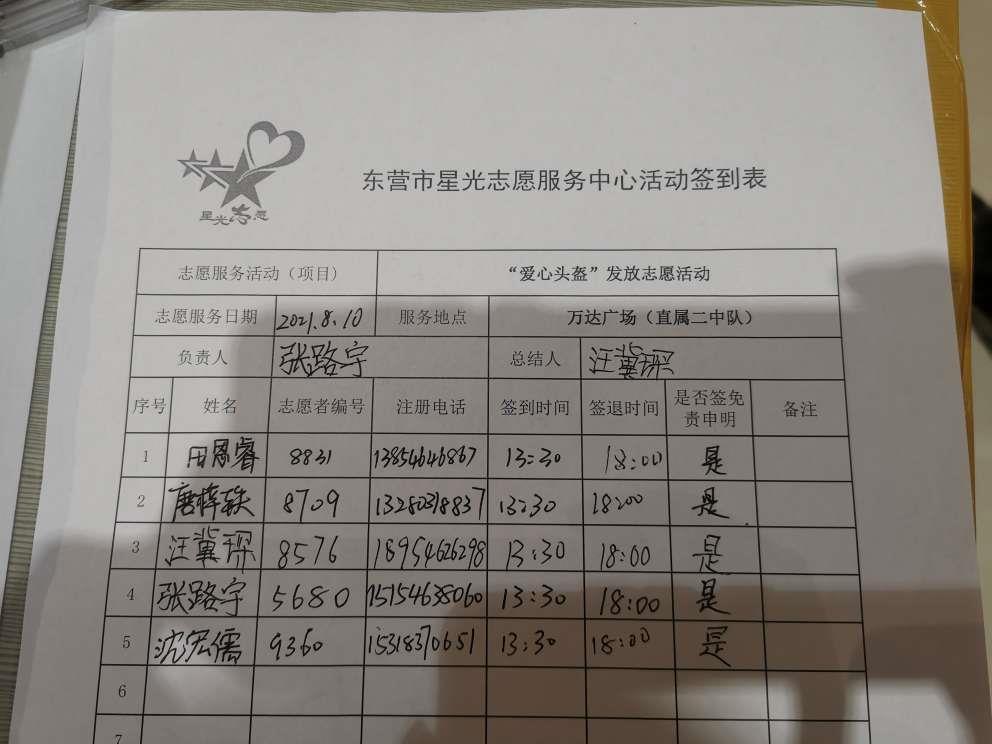 星光志愿
东营市星光志愿服务中心活动签到表
志愿服务活动（项目） “爱心头盔”发放志愿活动
志愿服务日期 2021.8.10 服务地点 万达广场（直属二中队）
负责人 张路宇 总结人 汪冀琛
序号 姓名 志愿者编号 注册电话 签到时间 签退时间 是否签免责申明 备注
1 田恩睿 8831 13854646867 13:30 18:00 是
2 唐梓轶 8709 13280318837 13:30 18:00 是
3 汪冀琛 8576 18954626298 13:30 18:00 是
4 张路宇 5680 15154638060 13:30 18:00 是
5 沈宏儒 9360 15318370651 13:30 18:00 是
6
7